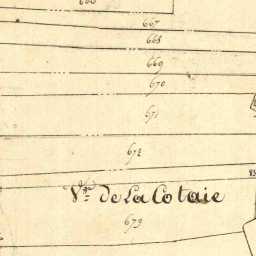 666
667
668
669
670
671
672
Vᵍᵉ de La Cotaie
673